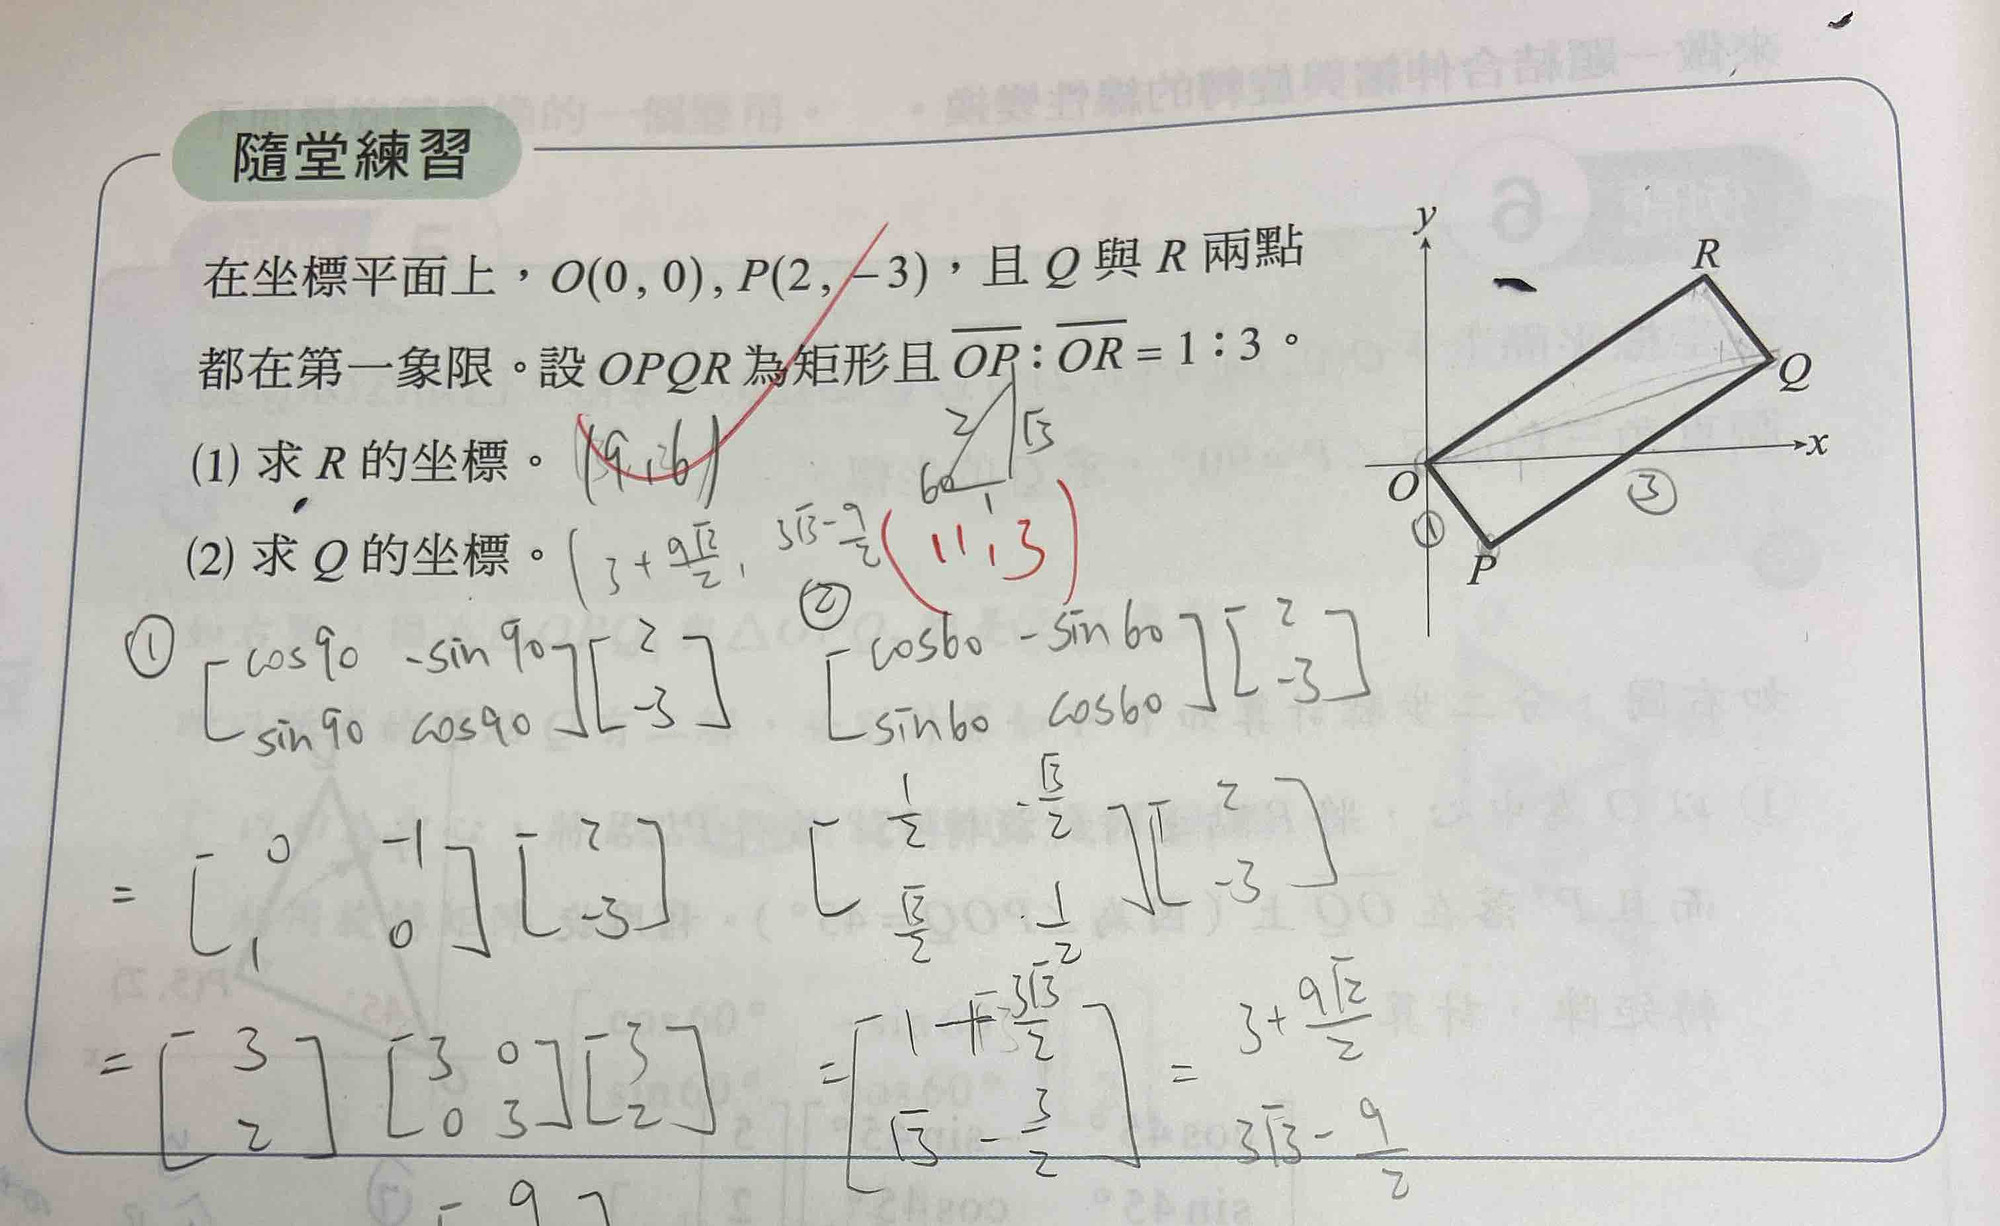 隨堂練習
在坐標平面上，O(0, 0), P(2, −3)，且 Q 與 R 兩點
都在第一象限。設 OPQR 為矩形且 OP : OR = 1 : 3。
(1) 求 R 的坐標。 (9, 6)
(2) 求 Q 的坐標。 (3+9√3/2, 3√3-9/2) (11, 3)
2 √3
60 1
y
R
Q
x
O
③
①
P
① [cos90 -sin90] [2]
[sin90 cos90] [-3]
② [cos60 -sin60] [2]
[sin60 cos60] [-3]
= [0 -1] [2]
[1 0] [-3]
[1/2 -√3/2] [2]
[√3/2 1/2] [-3]
= [3] [3 0] [3]
[2] [0 3] [2]
= [1+3√3/2] = 3+9√3/2
[√3-3/2] 3√3-9/2
[9]